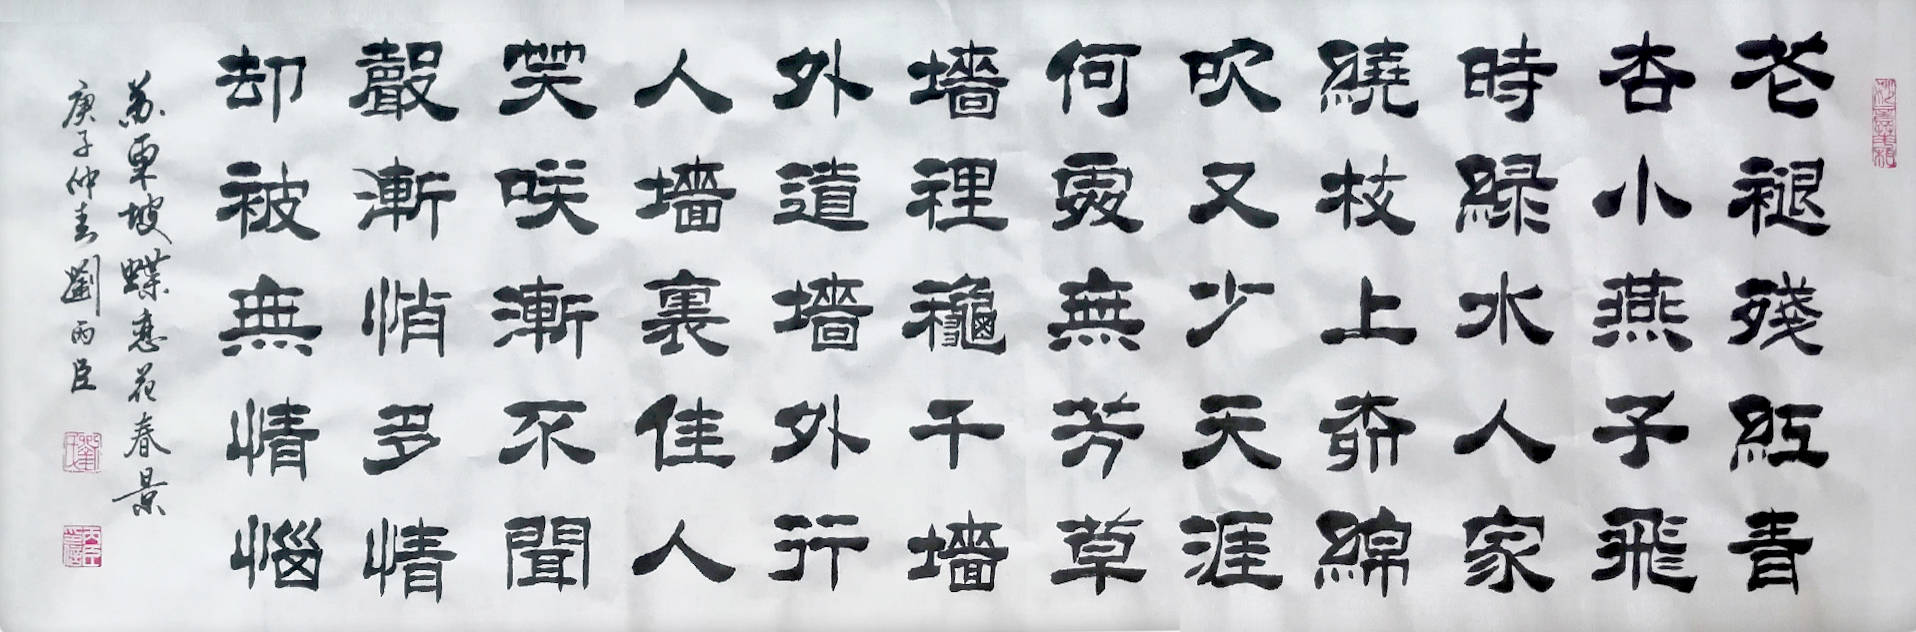 老褪殘紅青
杏小燕子飛
時綠水人家
繞枝上柳綿
吹又少天涯
何處無芳草
墻裡龝千墻
外道墻外行
人墻裏佳人
笑咲漸不聞
聲漸悄多情
却被無情惱
苏東坡蝶恋花春景
庚子仲春劉丙臣